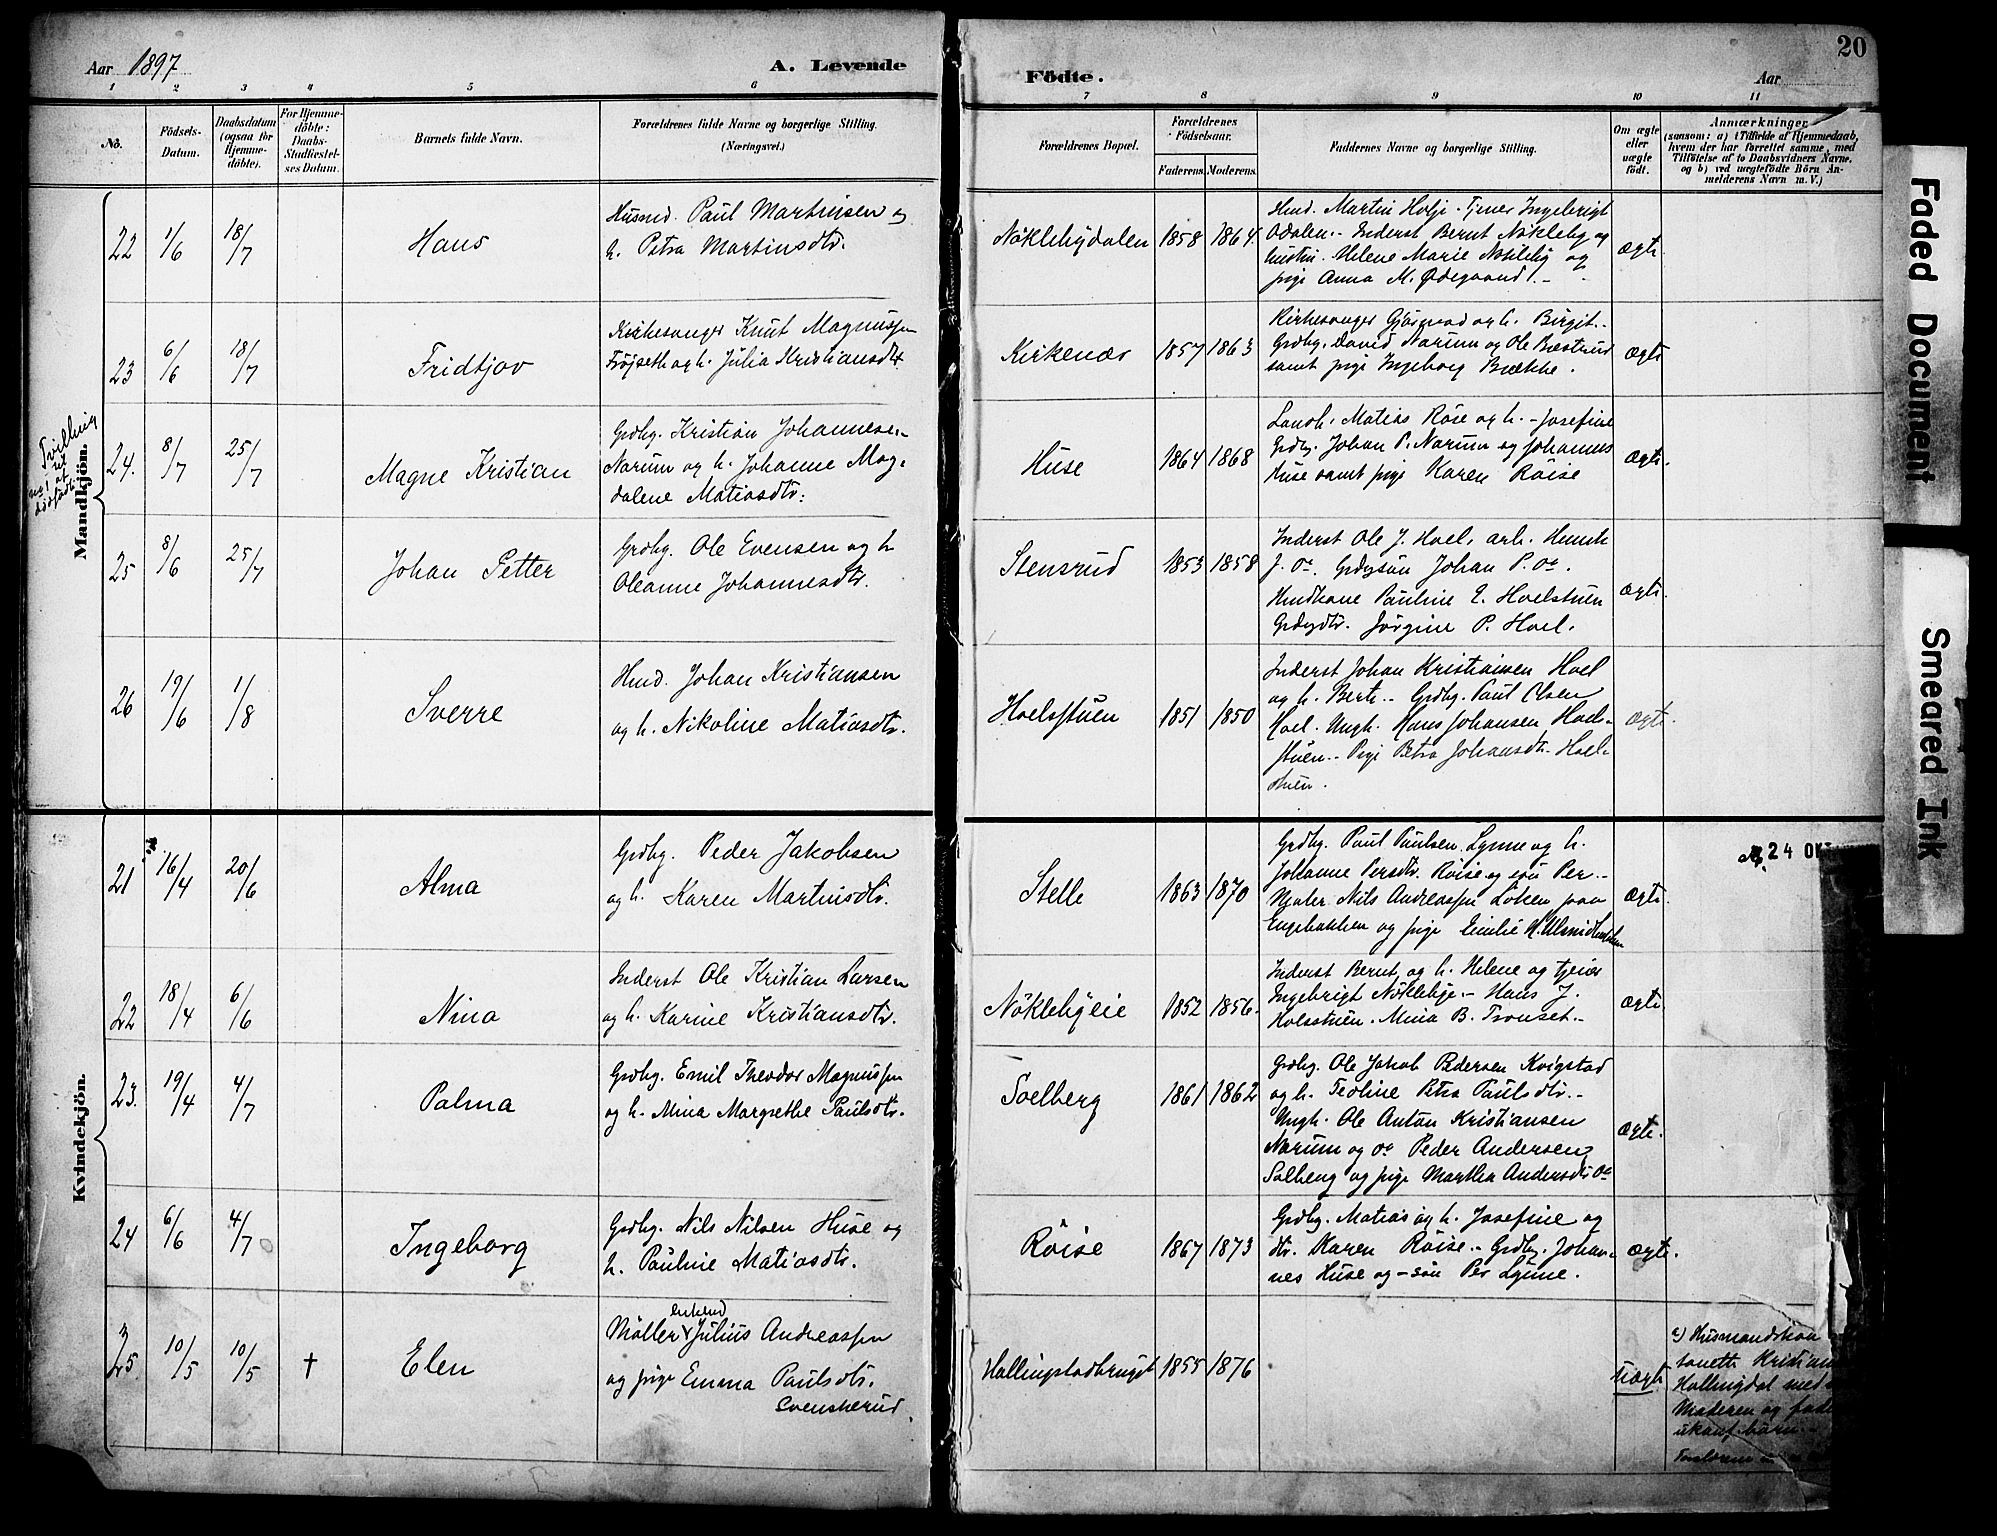 Aar 1897
A. Levende
Födte.
Aar
20
1 2 3 4 5 6 7 8 9 10 11
No.
Födsels-
Datum.
Daabsdatum
(ogsaa for
Hjemme-
döbte).
For Hjemme-
döbte:
Daabs-
Stadfæstel-
ses Datum.
Barnets fulde Navn.
Forældrenes fulde Navne og borgerlige Stilling.
(Næringsvei.)
Forældrenes Bopæl.
Forældrenes
Födselsaar.
Faderens. Moderens.
Faddernes Navne og borgerlige Stilling.
Om ægte
eller
uægte
født.
Anmærkninger
(saasom: a) i Tilfælde af Hjemmedaab,
hvem der har forrettet samme, med
Tilföielse af to Daabsvidners Navne,
og b) ved uægtefödte Börn An-
melderens Navn m. V.)
Mandkjön.
22 1/6 18/7 Hans
Husmd. Paul Martinsen og
h. Petra Martinsdtr.
Nöklebydalen 1858 1864.
Hmd. Martin Holje. Tjener Ingebrigt
Odalen.- Inderst Bernt Nökleby og
hustru. Helene Marie Nökleby og
pige Anna M. Ødegaard.-
ægte.
23 6/6 18/7 Fridtjov
Kirkesanger Knut Magnussen
Fröjseth og h. Julia Kristiansdtr.
Kirkenær 1857 1863
Kirkesanger Gjörstad og h. Birgit..
Grdbg. David Narum og Ole Bæstrud
samt pige Ingeborg Brække.
ægte
Tvilling
til
no. 1 af
dödfödte.
24. 8/7 25/7 Magne Kristian
Grdbg. Kristian Johannesen-
Narum og h. Johanne Mag-
dalene Matiasdtr:
Huse 1864 1868
Landh. Matias Röse og h. - Josefine
Grdbg. Johan P. Narum og Johannes
Huse samt pige Karen Röise
ægte.
25 8/6 25/7 Johan Petter
Grdbg. Ole Evensen og h
Oleanne Johannesdtr.
Stensrud 1853 1858
Inderst Ole J. Hoel, arb. Henrik
J. o⁰. Grdbgsön Johan P. o⁰.
Hmdkone Pauline E. Hoelstuen
Grdbgdtr. Jörgine P. Hoel.
ægte.
26 19/6 1/8 Sverre
Hmd. Johan Kristiansen
og h. Nikoline Matiasdtr.
Hoelsstuen 1851 1850
Inderst Johan Kristiansen Hoel
og h. Berte.. Grdbg. Paul Olsen
Hoel. Ungk. Hans Johansen Hoel-
stuen.. Pige Petra Johansdtr. Hoel-
stuen.
ægte.
Kvindekjön.
21 16/4 20/6 Alma
Grdbg. Peder Jakobsen
og h. Karen Martinsdtr.
Stelle 1863 1870
Grdbg. Paul Paulsen Lynne og h.
Johanne Persdtr. Röise og sön Per.-
Möller Nils Andreassen Löken paa
Engebakken og pige Emilie
ægte.
24 OKT
22 18/4 6/6 Nina
Inderst Ole Kristian Larsen
og h. Karine Kristiansdtr.
Nöklebyeie 1852 1856.
Inderst Bernt og h. Helene og tjener
Ingebrigt Nöklebye.- Hans J.
Holsstuen. Mina B. Tronset.-
ægte.
23. 19/4 4/7 Palma
Grdbg. Emil Theodor Magnussen
og h. Mina Margrethe Paulsdtr.
Soelberg 1861 1862
Grdbg. Ole Jakob Pedersen Kvigstad
og h. Teoline Petra Paulsdtr.-
Ungk. Ole Anton Kristiansen
Narum og o⁰ Peder Andersen
Solberg og pige Martha Andersdtr o⁰
ægte.
24 6/6 4/7 Ingeborg
Grdbg. Nils Nilsen Huse og
h. Pauline Matiasdtr.
Röise 1867 1873
Grdbg. Matias og h. Josefine og
dtr. Karen Röise.- Grdbg. Johan-
nes Huse og - sön Per Lynne.
ægte.
25. 10/5 10/5 † Elen
enkemd
Möller Julius Andreassen
og pige Emma Paulsdtr.
Svenskerud.
Hallingstadbruget 1855 1876
uægte
a) Husmandskon
Kristian
Hallingdal med
Moderen og fade
ukonf. barn.-
Faded Document
Smeared Ink